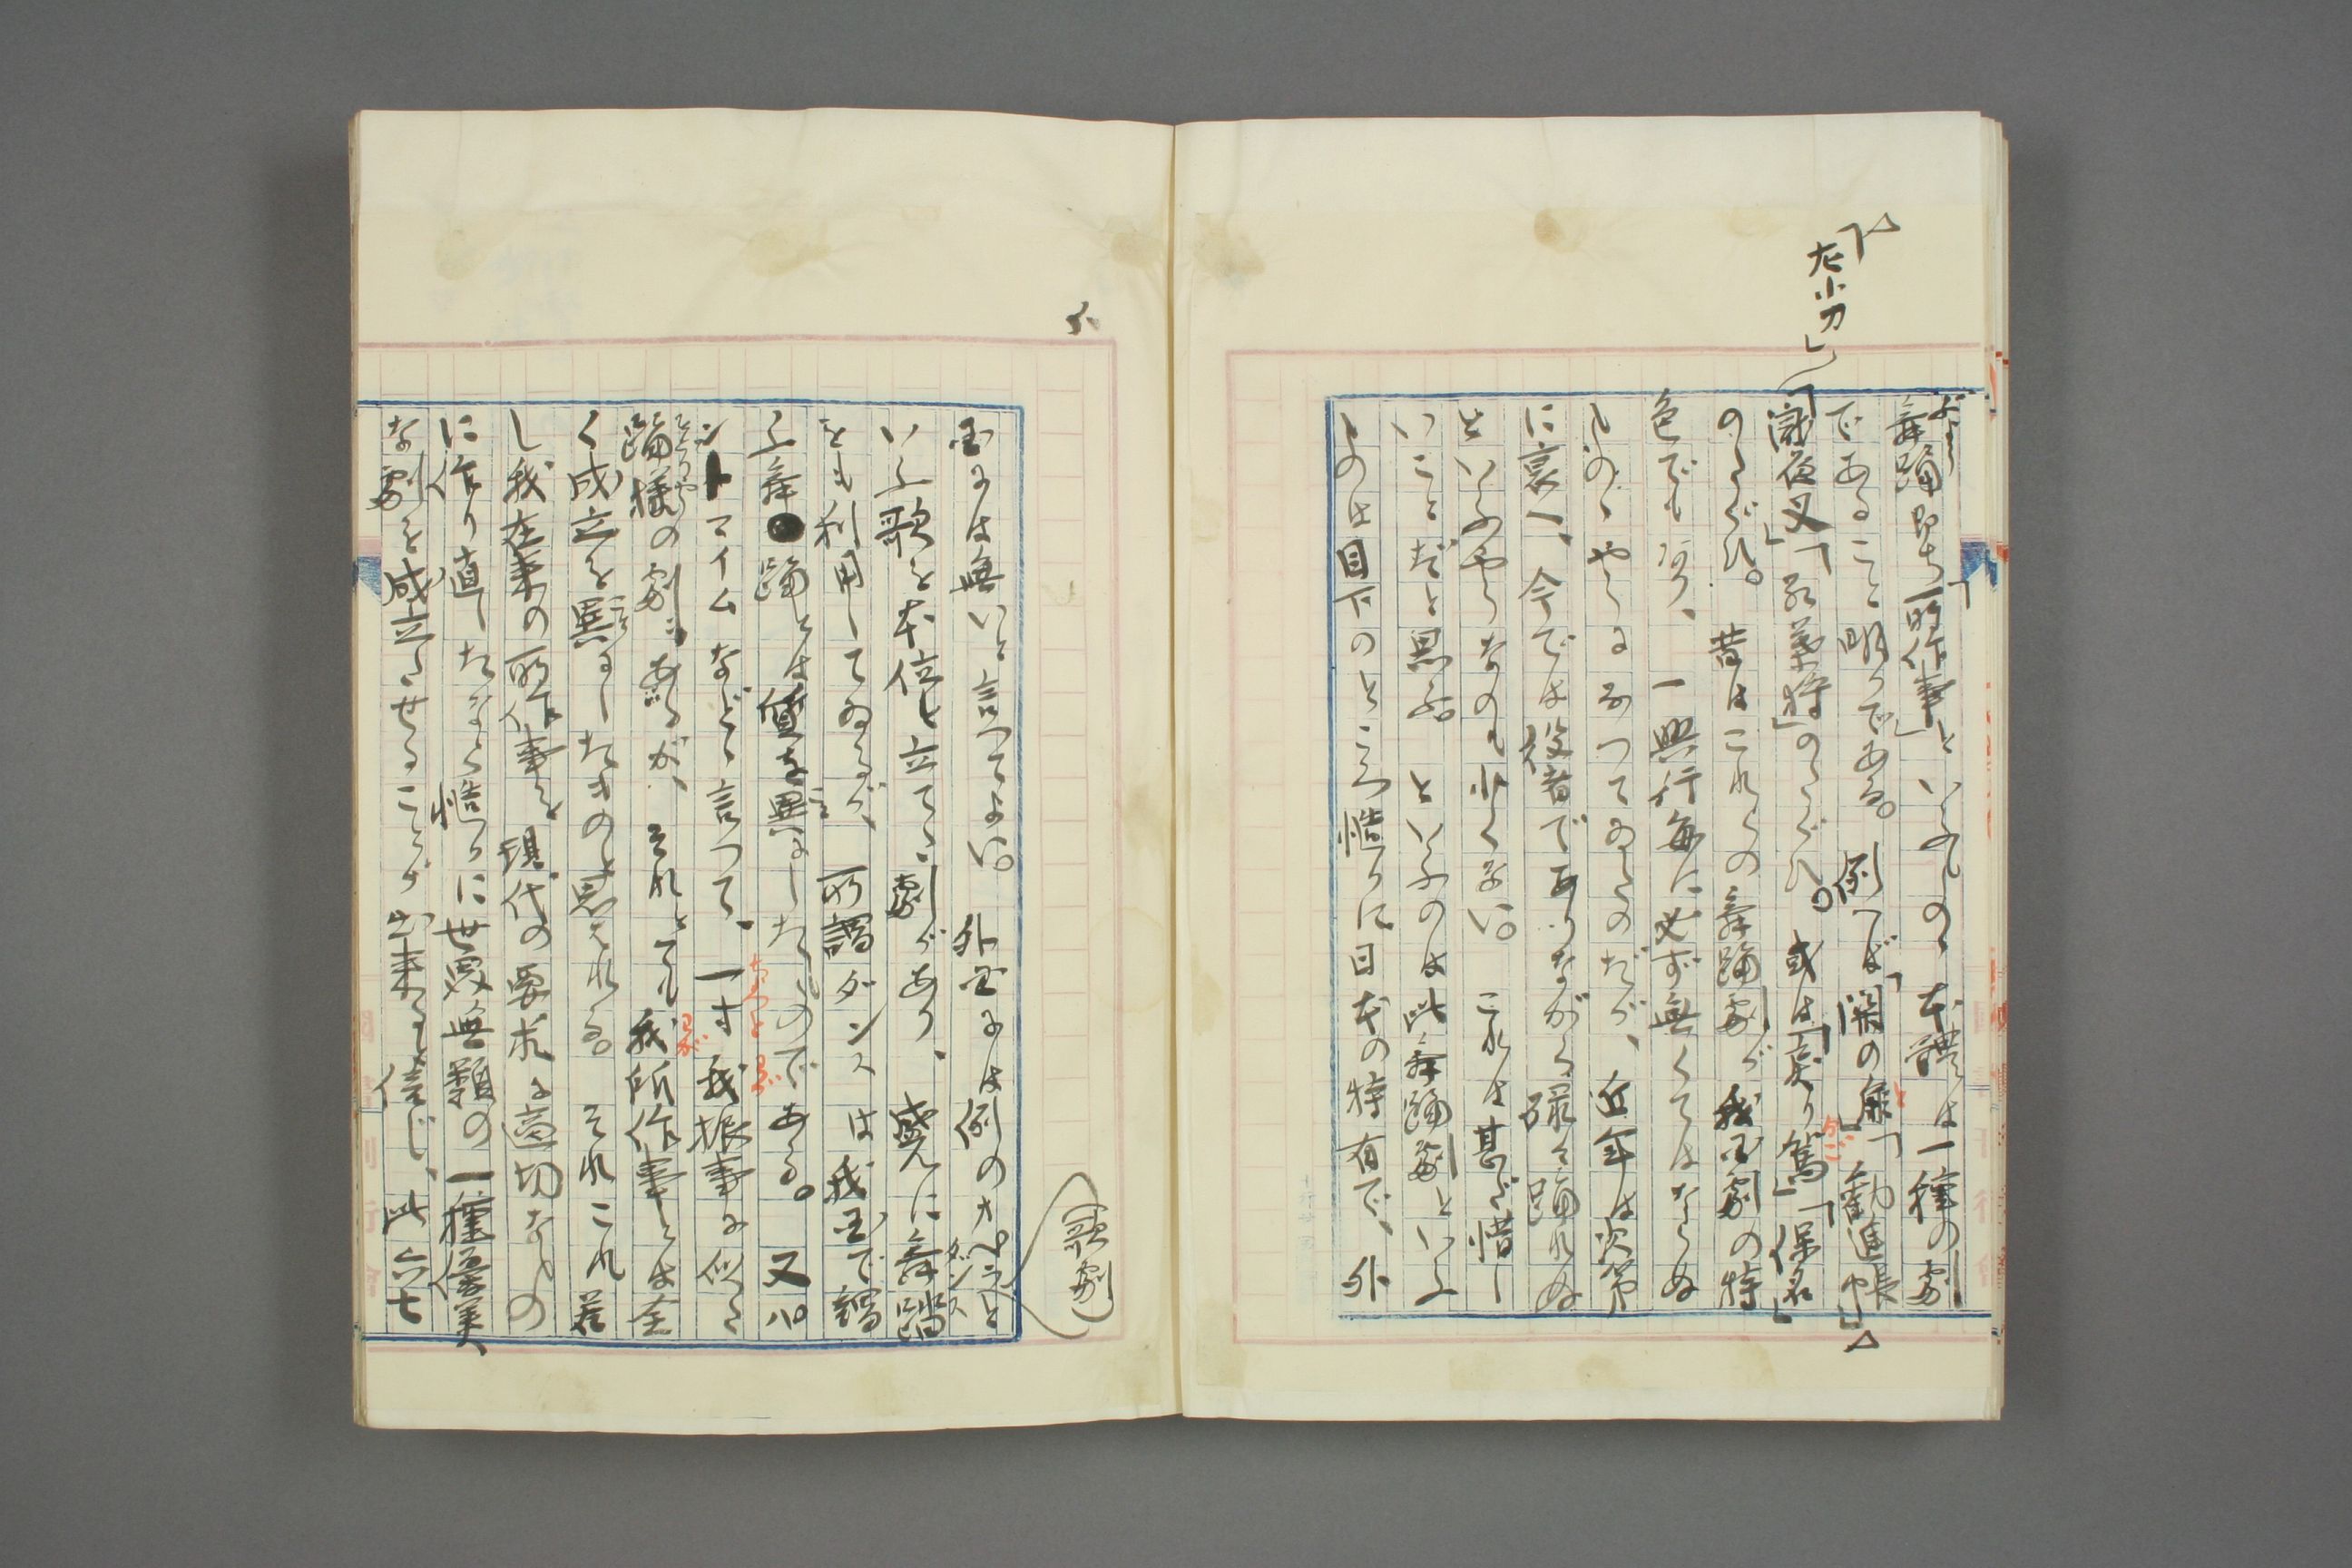 舞踊即ち「所作事」といふものゝ本體は一種の劇
であること明かである。例へば「関の扉」「勧進帳」
「太小刀」
「瀧夜叉」「紅葉狩」のたぐひ。或は「戻り駕」「保名」
のたぐひ。昔はこれらの舞踊劇が我国劇の特
色でもあり、一興行毎に必ず無くてはならぬ
ものゝやうになつてゐたのだが、近年は次第
に衰へ、今では役者でありながら碌々踊れぬ
といふやうなのも少くない。これは甚だ惜し
いことだと思ふ。といふのは此舞踊劇といふ
ものは目下のところ慥かに日本の特有で、外
国には無いと言つてよい。外国には例のオペラと
(歌劇)
いふ歌を本位に立てた劇があり、盛んに舞踏
ダンス
をも利用してゐるが、所謂ダンスは我国で謂
ふ舞踊とは質を異にしたものである。又パ
ントマイムなどゝ言つて、一寸我振事に似た
ちよつと わが
踊様の劇もあるが、それとても我所作事とは全
わが
く成立を異にしたものと思はれる。それこれ若
し我在来の所作事を現代の要求に適切なもの
に作り直したなら慥かに世界無類の一種優美
な劇を成立たせることが出来ると信じ、此六七